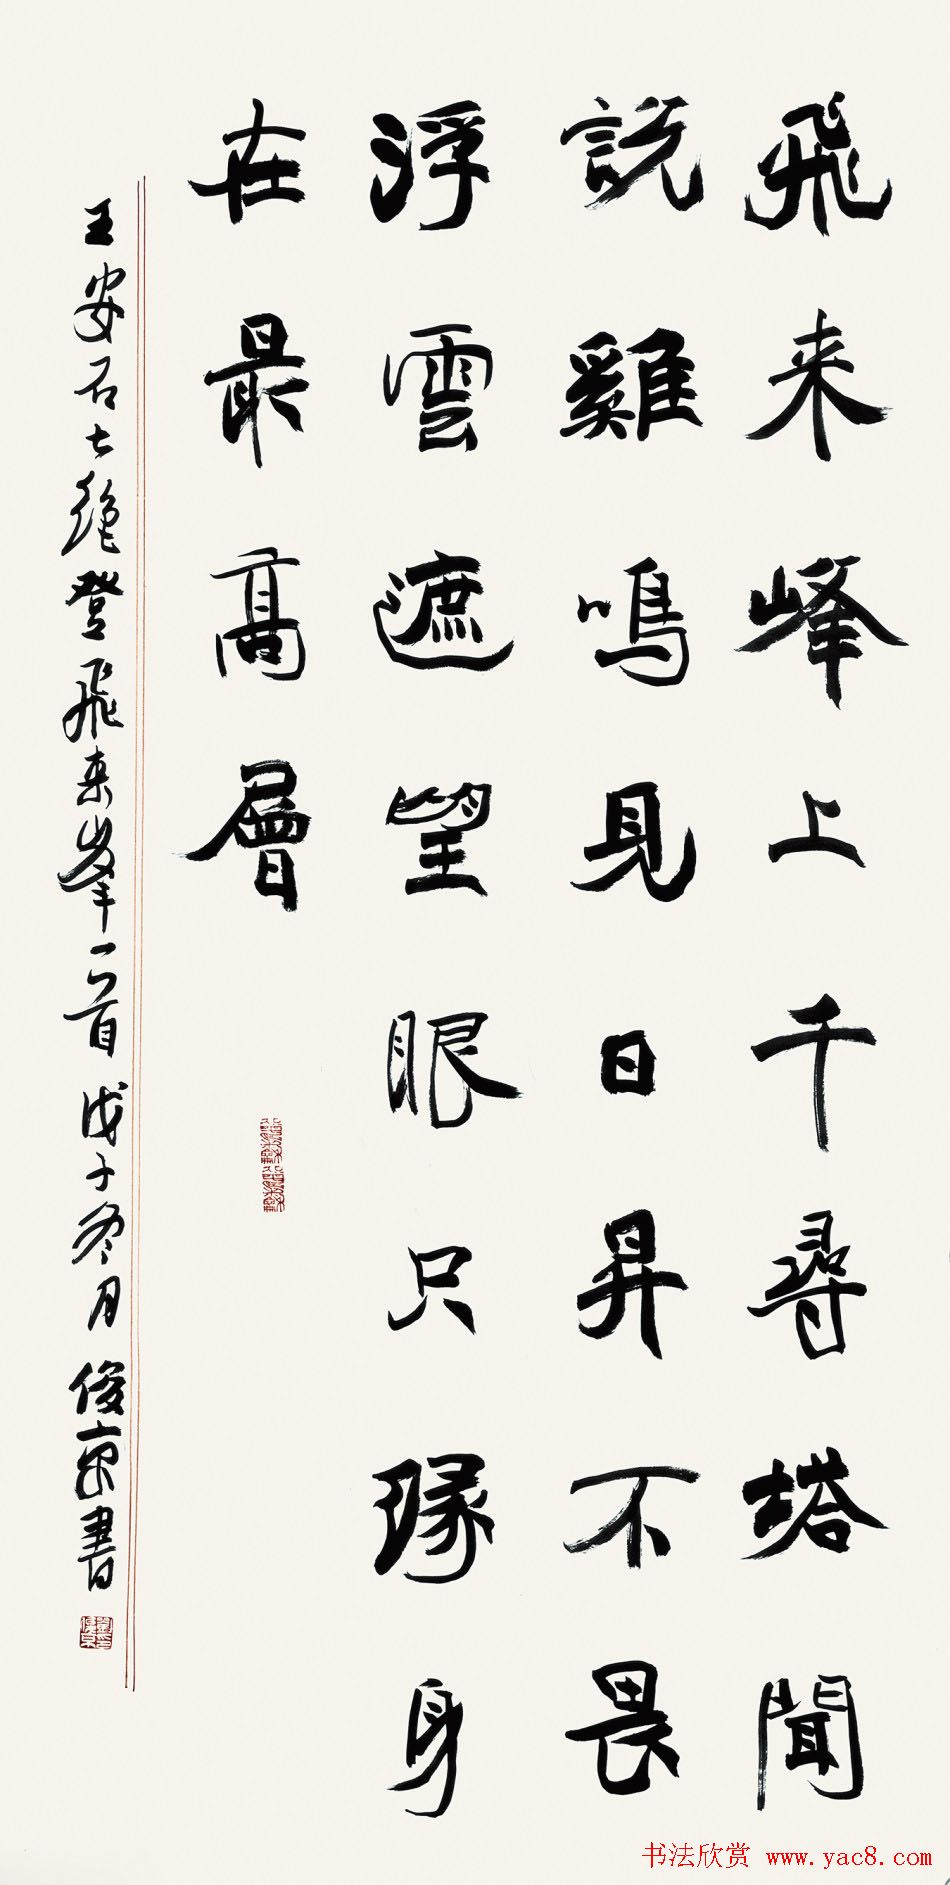 飛来峰上千尋塔聞
説雞鳴見日昇不畏
浮雲遮望眼只緣身
在最高層
王安石七絶登飛来峯一首 戊子冬月 俊京書
书法欣赏 www.yac8.com